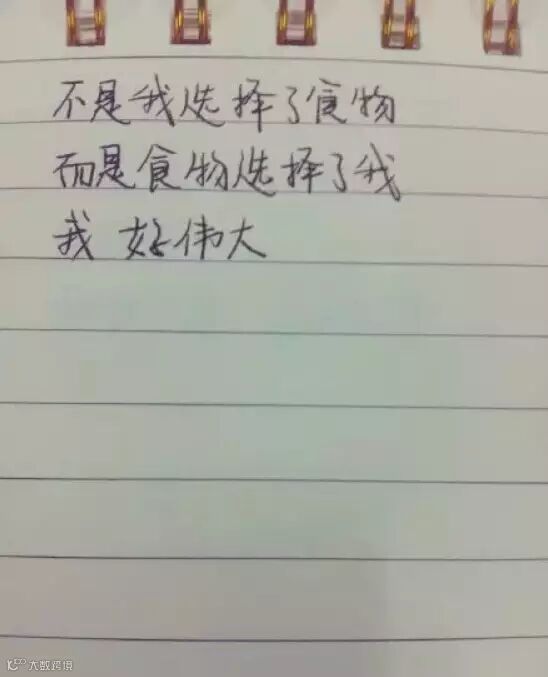 不是我选择了食物
而是食物选择了我
我 好伟大
大数跨境